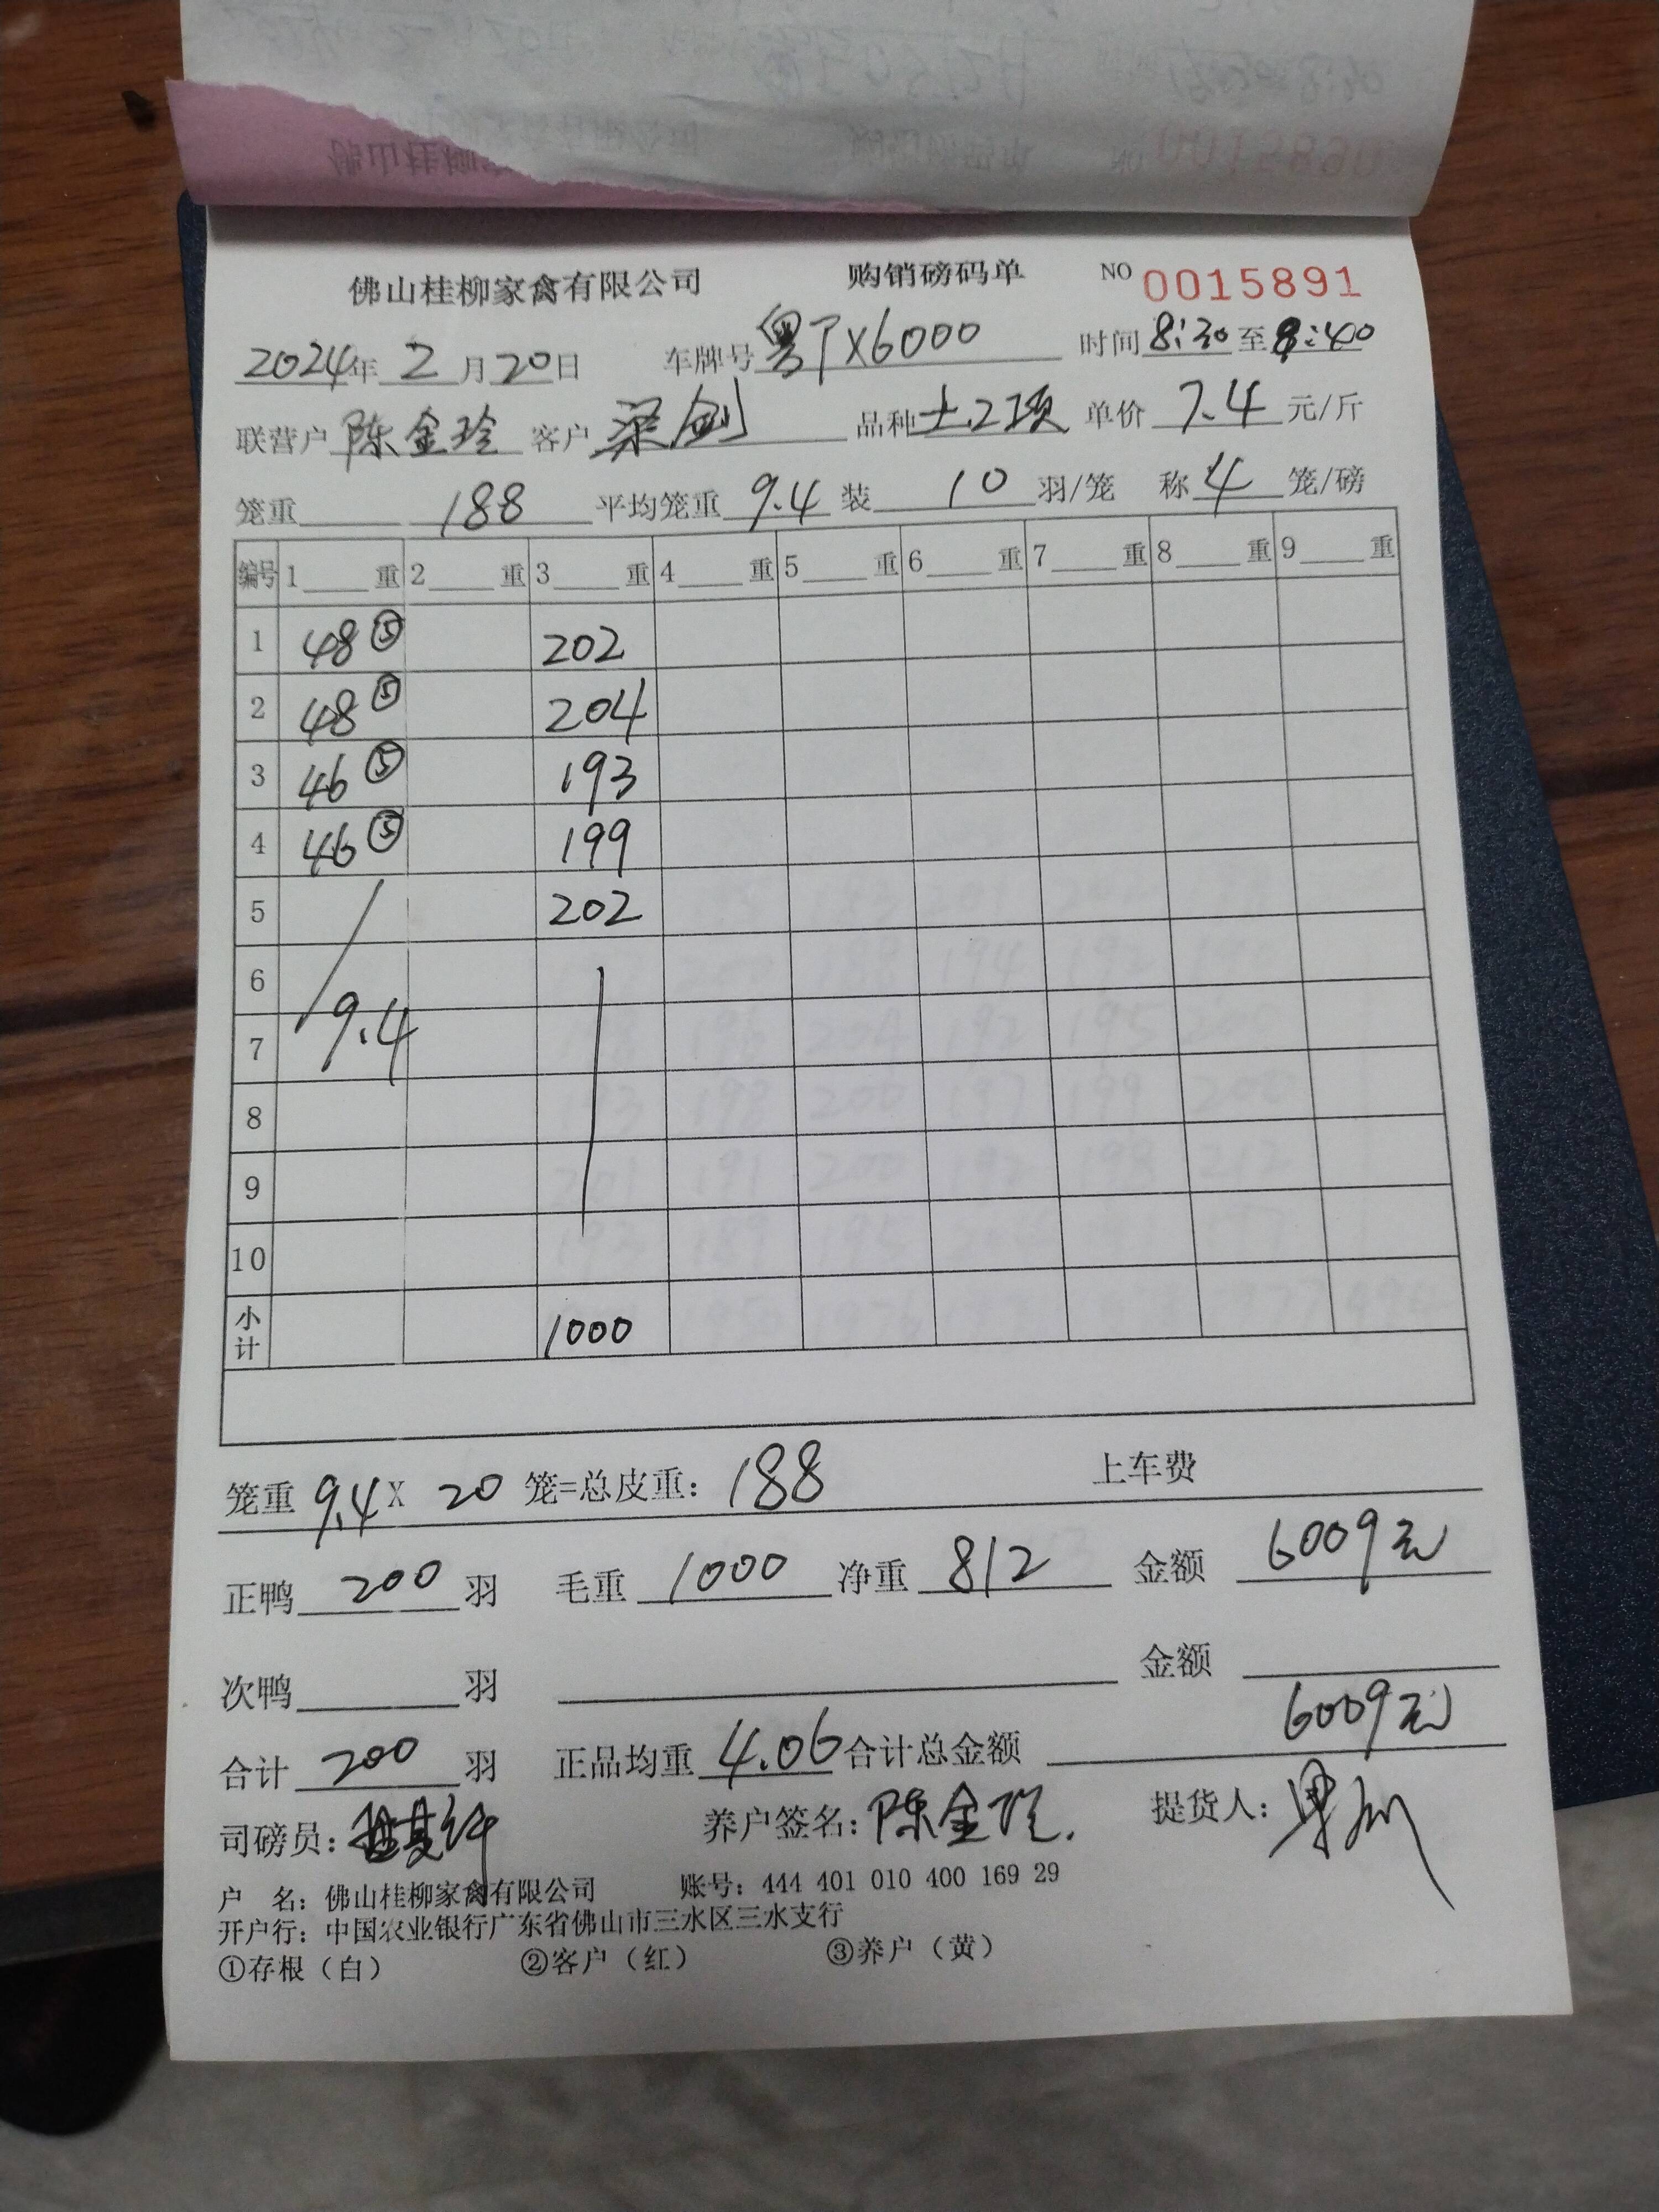 佛山桂柳家禽有限公司 购销磅码单 NO 0015891
2024年 2 月 20 日 车牌号 粤TX6000 时间 8:30 至 8:40
联营户 陈金玲 客户 梁剑 品种 土2项 单价 7.4 元/斤
笼重 188 平均笼重 9.4 装 10 羽/笼 称 4 笼/磅
编号 1 重 2 重 3 重 4 重 5 重 6 重 7 重 8 重 9 重
1 48⑤ 202
2 48⑤ 204
3 46⑤ 193
4 46⑤ 199
5 202
6
7 9.4
8
9
10
小计 1000
笼重 9.4 X 20 笼=总皮重: 188 上车费
正鸭 200 羽 毛重 1000 净重 812 金额 6009元
次鸭 羽 金额
合计 200 羽 正品均重 4.06 合计总金额 6009元
司磅员: 养户签名: 陈金玲. 提货人:
户 名: 佛山桂柳家禽有限公司 账号: 444 401 010 400 169 29
开户行: 中国农业银行广东省佛山市三水区三水支行
①存根（白） ②客户（红） ③养户（黄）